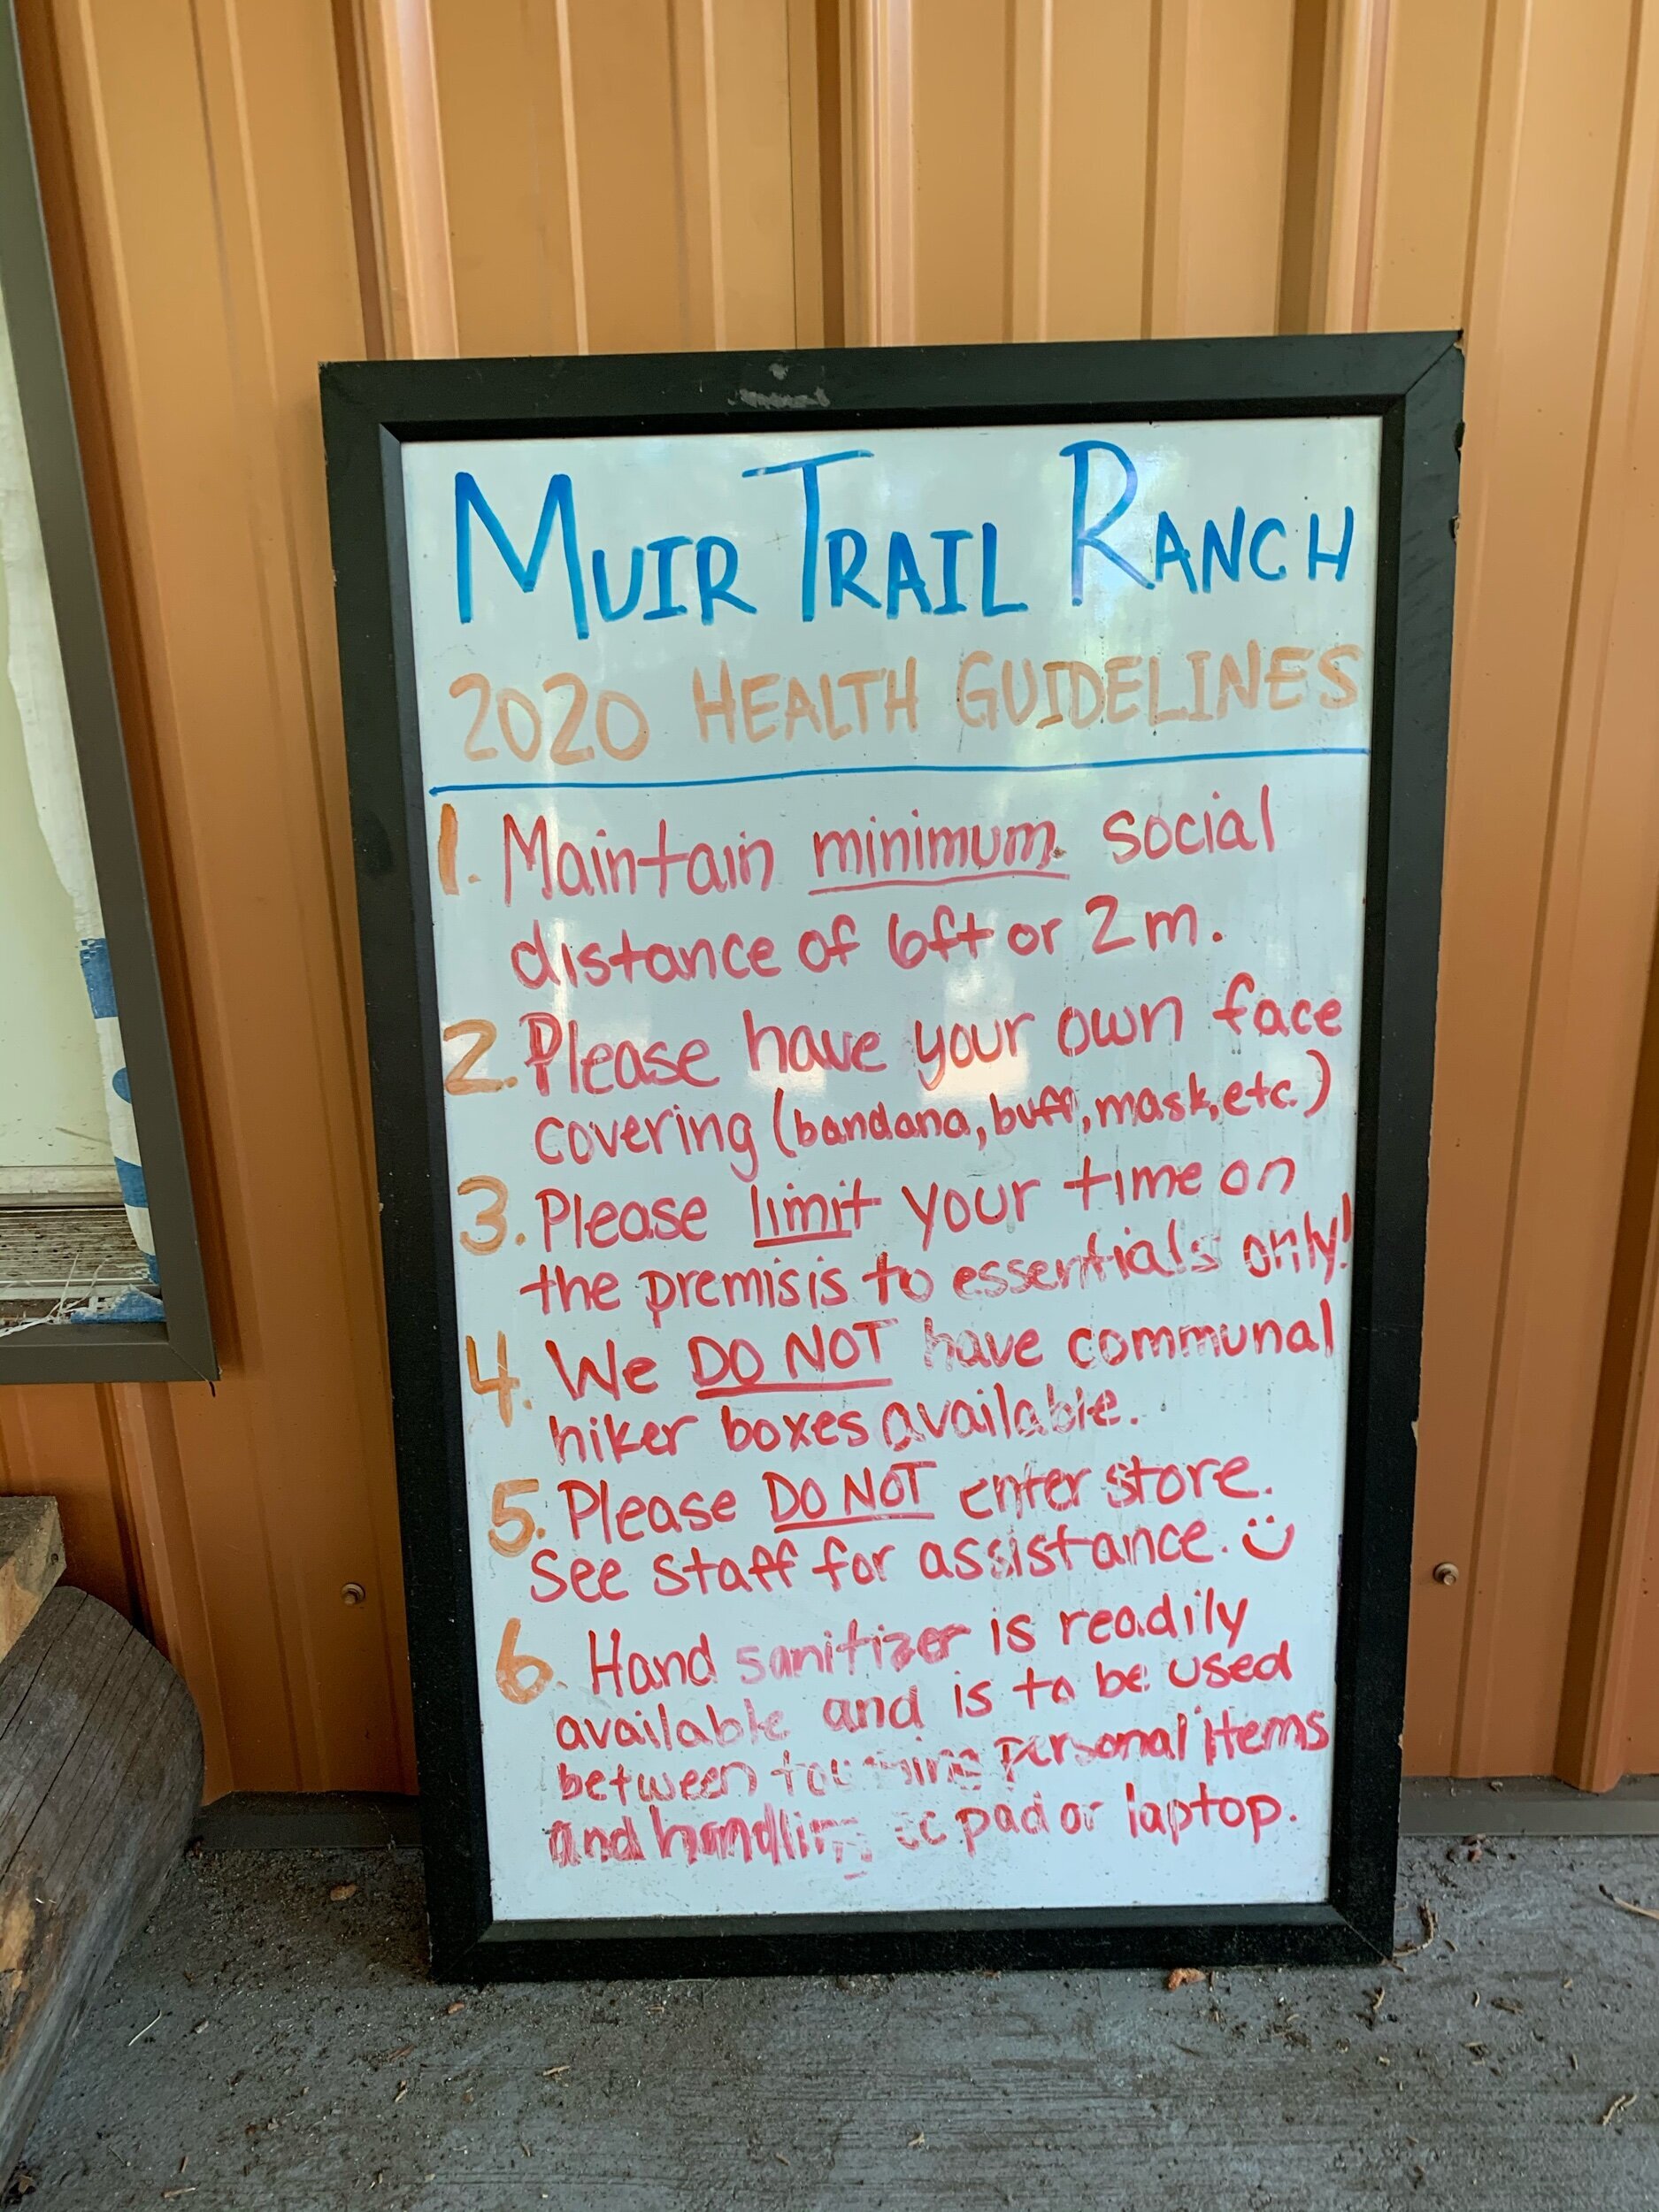 MUIR TRAIL RANCH
2020 HEALTH GUIDELINES
1. Maintain minimum social
distance of 6ft or 2m.
2. Please have your own face
covering (bandana, buff, mask, etc.)
3. Please limit your time on
the premisis to essentials only!
4. We DO NOT have communal
hiker boxes available.
5. Please DO NOT enter store.
See staff for assistance. :)
6. Hand sanitizer is readily
available and is to be used
between touching personal items
and handling cc pad or laptop.